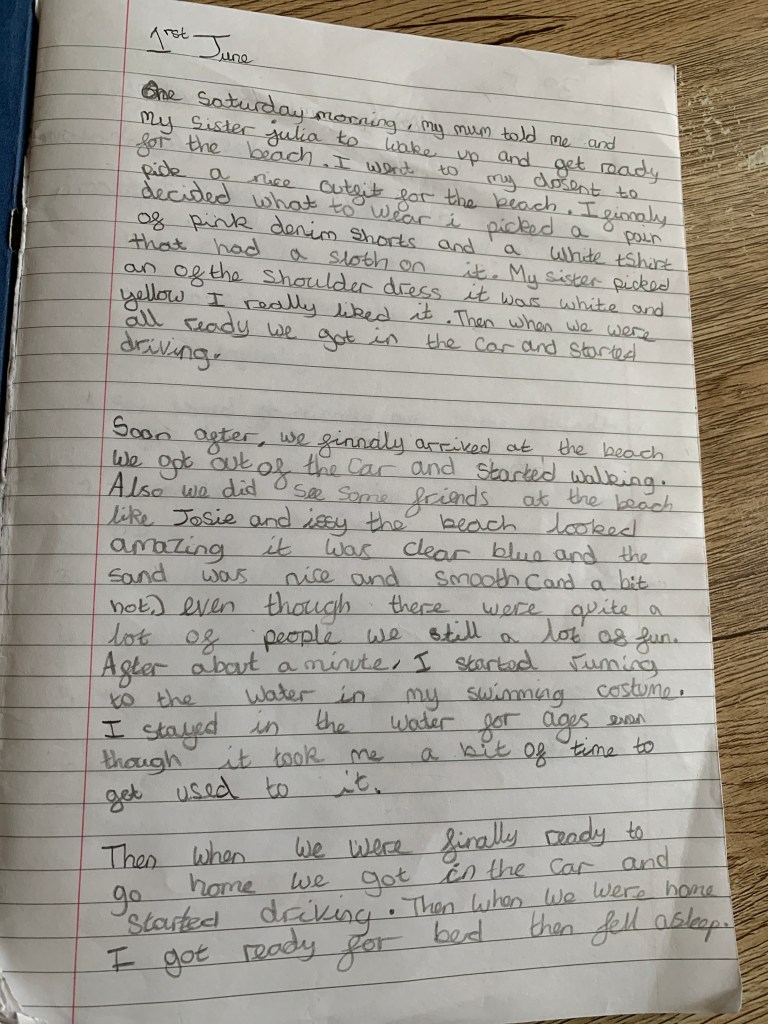 1rst June
One Saturday morning, my mum told me and
my sister julia to wake up and get ready
for the beach. I went to my closent to
pick a nice outfit for the beach. I finnaly
decided what to wear i picked a pair
of pink denim shorts and a white tshirt
that had a sloth on it. My sister picked
an of the shoulder dress it was white and
yellow I really liked it. Then when we were
all ready we got in the car and started
driving.
Soon after, we finnaly arrived at the beach
We got out of the car and started walking.
Also we did see some friends at the beach
like Josie and issy the beach looked
amazing it was clear blue and the
sand was nice and smooth (and a bit
hot.) even though there were quite a
lot of people we still a lot of fun.
After about a minute, I started running
to the water in my swimming costume.
I stayed in the water for ages even
though it took me a bit of time to
get used to it.
Then when we were finally ready to
go home we got in the car and
started driving. Then when we were home
I got ready for bed then fell asleep.